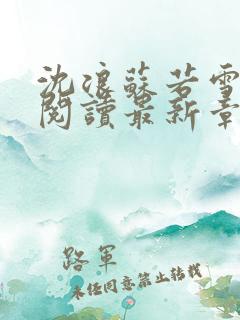 沈浪蘇若雪
閱讀最新章
路軍
未经同意禁止转载